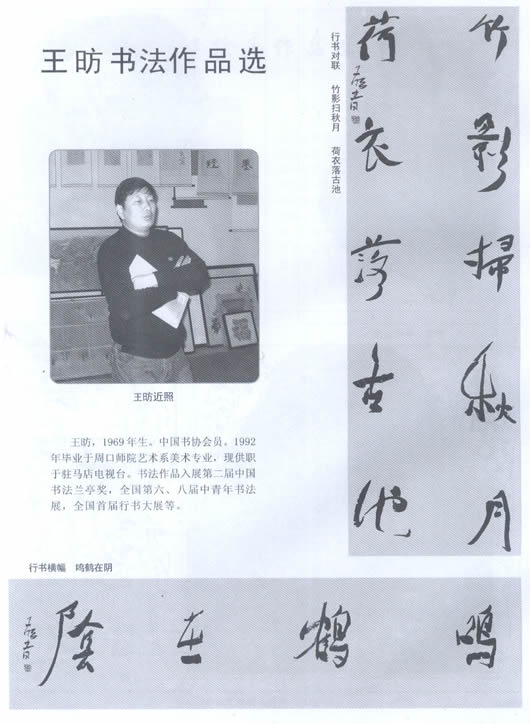 王昉书法作品选
行书对联　竹影扫秋月　荷衣落古池
竹影掃秋月
荷衣落古池
王昉近照
王昉，1969年生。中国书协会员。1992
年毕业于周口师院艺术系美术专业，现供职
于驻马店电视台。书法作品入展第二届中国
书法兰亭奖，全国第六、八届中青年书法
展，全国首届行书大展等。
行书横幅　鸣鹤在阴
鳴鶴在陰